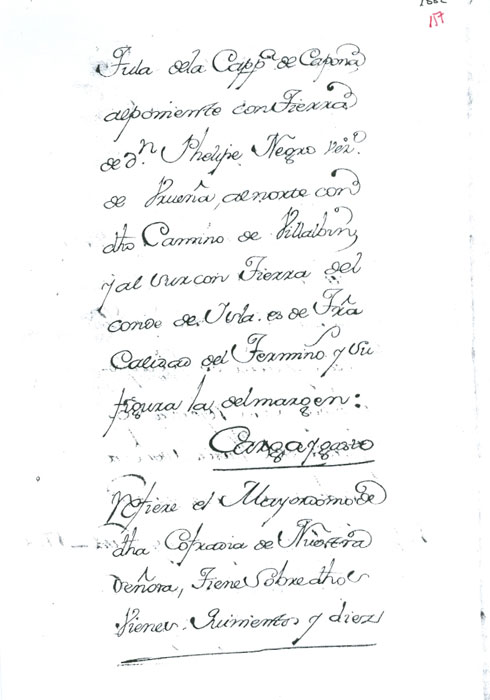 157
Tula de la Capp.ª de Capona
al poniente con Tierra
de d.n Phelipe Negro vez.º
de Urueña, al norte con
dho Camino de Villalbin,
y al sur con Tierra del
conde de Vrla. es de Frã
Calizad del Termino y su
figura la del margen:
Carga y gravo
Refiere el Mayordomo de
dha Cofradia de Nuestra
Señora, Tiene Sobre dhos
vienes Quinientos y diez